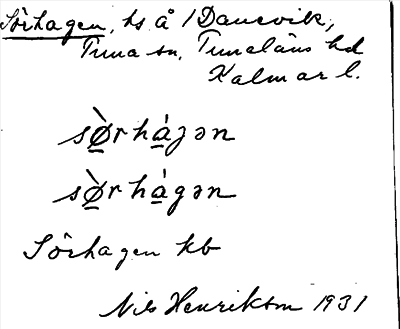 Sörhagen, ts å /Danevik,
Tuna sn, Tunaläns hd
Kalmar l.
sø̱̀rhá̱gən
sø̱̀rhá̱gən
Sörhagen kb
Nils Henrikson 1931